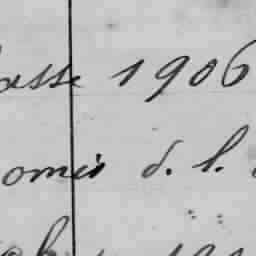 asse 1906
omis d. l.